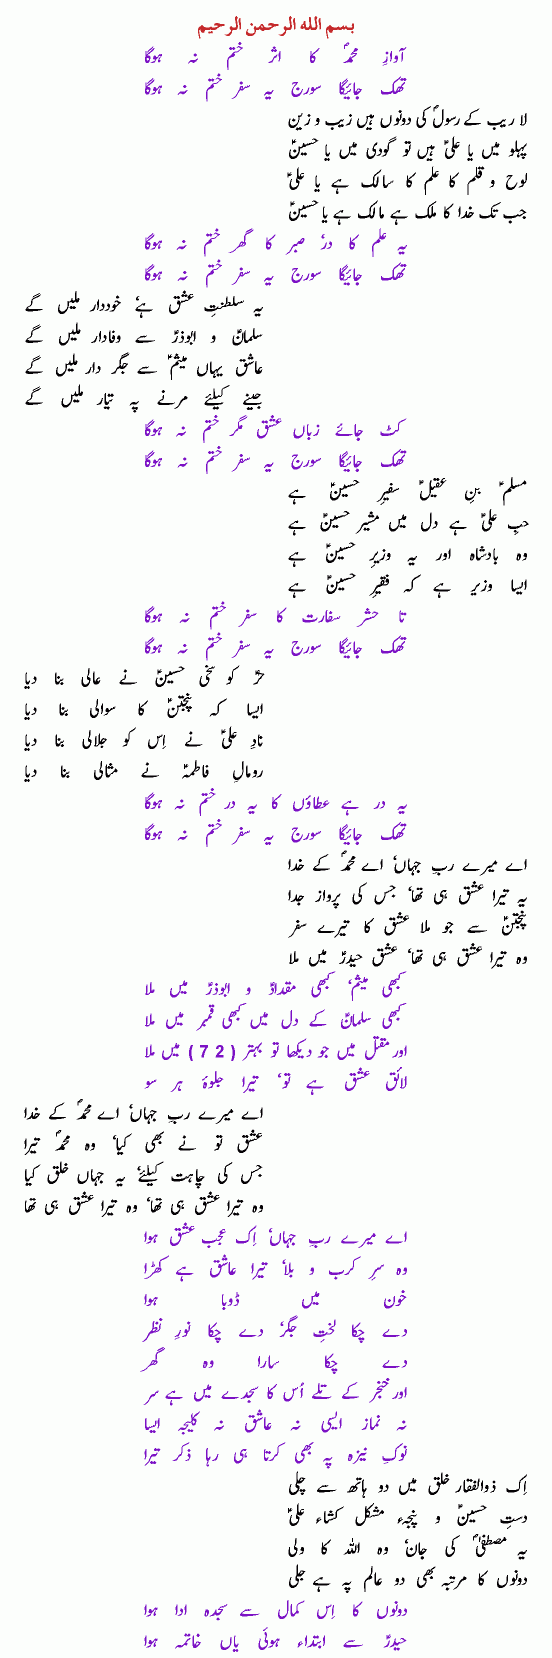 بسم الله الرحمن الرحيم
آوازِ محمدؐ کا اثر ختم نہ ہوگا
تھک جائیگا سورج یہ سفر ختم نہ ہوگا
لا ریب کے رسولؐ کی دونوں ہیں زیب و زین
پہلو میں یا علیؑ ہیں تو گودی میں یا حسینؑ
لوح و قلم کا علم کا سالک ہے یا علیؑ
جب تک خدا کا ملک ہے مالک ہے یا حسینؑ
یہ علم کا در، صبر کا گھر ختم نہ ہوگا
تھک جائیگا سورج یہ سفر ختم نہ ہوگا
یہ سلطنتِ عشق ہے، خوددار ملیں گے
سلمانؑ و ابوذرؑ سے وفادار ملیں گے
عاشق یہاں میثمؑ سے جگر دار ملیں گے
جینے کیلئے مرنے پہ تیار ملیں گے
کٹ جائے زباں عشق مگر ختم نہ ہوگا
تھک جائیگا سورج یہ سفر ختم نہ ہوگا
مسلمؑ بنِ عقیلؑ سفیرِ حسینؑ ہے
حبِ علیؑ ہے دل میں مشیرِ حسینؑ ہے
وہ بادشاہ اور یہ وزیرِ حسینؑ ہے
ایسا وزیر ہے کہ فقیرِ حسینؑ ہے
تا حشر سفارت کا سفر ختم نہ ہوگا
تھک جائیگا سورج یہ سفر ختم نہ ہوگا
حرؑ کو سخی حسینؑ نے عالی بنا دیا
ایسا کہ پنجتنؑ کا سوالی بنا دیا
نادِ علیؑ نے اِس کو جلالی بنا دیا
رومالِ فاطمہؑ نے مثالی بنا دیا
یہ در ہے عطاؤں کا یہ در ختم نہ ہوگا
تھک جائیگا سورج یہ سفر ختم نہ ہوگا
اے میرے ربِ جہاں، اے محمدؐ کے خدا
یہ تیرا عشق ہی تھا، جس کی پرواز جدا
پنجتنؑ سے جو ملا عشق کا تیرے سفر
وہ تیرا عشق ہی تھا، عشق حیدرؑ میں ملا
کبھی میثم، کبھی مقدادؑ و ابوذرؑ میں ملا
کبھی سلمانؑ کے دل میں کبھی قمبر میں ملا
اور مقتل میں جو دیکھا تو بہتر (72) میں ملا
لائقِ عشق ہے تو، تیرا جلوۂ ہر سو
اے میرے ربِ جہاں، اے محمدؐ کے خدا
عشق تو نے بھی کیا، وہ محمدؐ تیرا
جس کی چاہت کیلئے، یہ جہاں خلق کیا
وہ تیرا عشق ہی تھا، وہ تیرا عشق ہی تھا
اے میرے ربِ جہاں، اِک عجب عشق ہوا
وہ سرِ کرب و بلا، تیرا عاشق ہے کھڑا
خون میں ڈوبا ہوا
دے چکا لختِ جگر، دے چکا نورِ نظر
دے چکا سارا وہ گھر
اور خنجر کے تلے اُس کا سجدے میں ہے سر
نہ نماز ایسی نہ عاشق نہ کلیجہ ایسا
نوکِ نیزہ پہ بھی کرتا ہی رہا ذکر تیرا
اِک ذوالفقار خلق میں دو ہاتھ سے چلی
دستِ حسینؑ و پنجہء مشکل کشاء علیؑ
یہ مصطفیٰؐ کی جان، وہ اللہ کا ولی
دونوں کا مرتبہ بھی دو عالم پہ ہے جلی
دونوں کا اِس کمال سے سجدہ ادا ہوا
حیدرؑ سے ابتداء ہوئی یاں خاتمہ ہوا